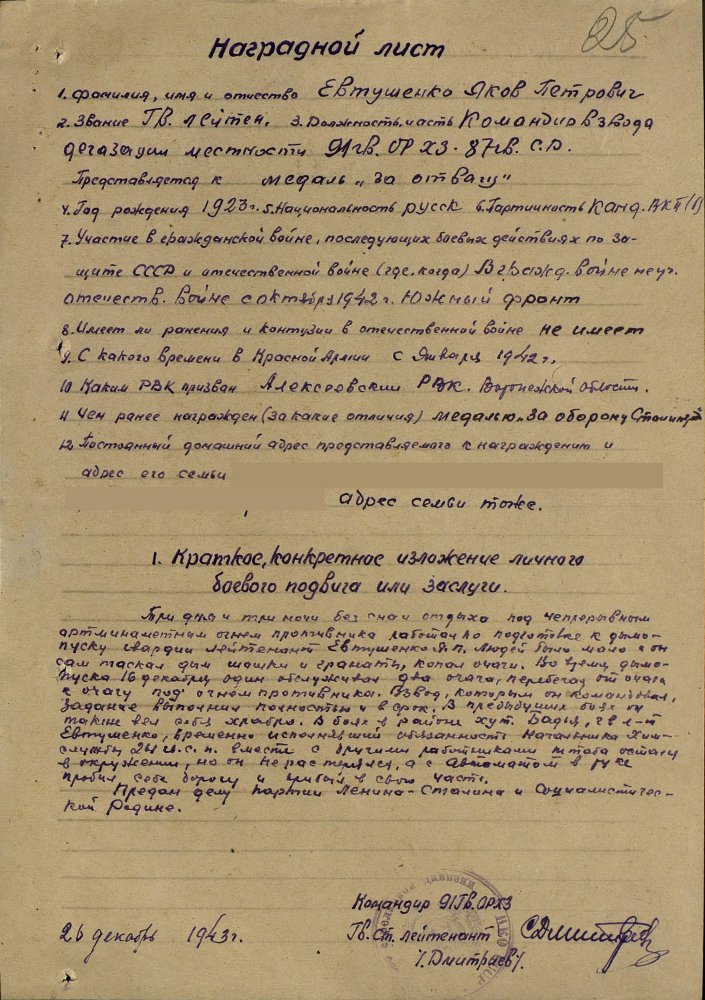 25
Наградной лист
1. Фамилия, имя и отчество Евтушенко Яков Петрович
2. Звание Гв. лейтен. 3. Должность, часть Командир взвода
дегазации местности 91 гв. ОРХЗ - 87 гв. С.Д.
Представляется к медаль „за отвагу"
4. Год рождения 1923 г. 5. Национальность русск 6. Партийность канд. ВКП(б)
7. Участие в гражданской войне, последующих боевых действиях по за-
щите СССР и отечественной войне (где, когда) В гражд. войне не уч.
отечеств. войне с октября 1942 г. Южный фронт
8. Имеет ли ранения и контузии в отечественной войне не имеет
9. С какого времени в Красной Армии с Января 1942 г.
10 Каким РВК призван Алексеевским РВК. Воронежской области.
11 Чем ранее награжден (за какие отличия) медалью „За оборону Сталинграда
12 Постоянный домашний адрес представляемого к награждению и
адрес его семьи
адрес семьи тоже.
1. Краткое, конкретное изложение личного
боевого подвига или заслуги.
Три дня и три ночи без сна и отдыха под непрерывным
артминаметным огнем противника работал по подготовке к дымо-
пуску гвардии лейтенант Евтушенко Я.П. Людей было мало и он
сам таскал дым шашки и гранаты, копал очаги. Во время дымо-
пуска 16 декабря один обслуживал два очага, перебегая от очага
к очагу под огнем противника. Взвод, которым он командовал,
задание выполнил полностью и в срок. В предыдущих боях он
также вел себя храбро. В боях в районе хут. гв л-т
Евтушенко, временно исполнявший обязанность Начальника Хим-
службы гв. с. п. вместе с другими работниками штаба остался
в окружении, но он не растерялся, а с автоматом в руке
пробил себе дорогу и прибыл в свою часть.
Предан делу партии Ленина-Сталина и Социалистичес-
кой Родине.
Командир 91 Гв. ОРХЗ
26 декабрь 1943 г. Гв. Ст. лейтенант
/. Дмитраев/.